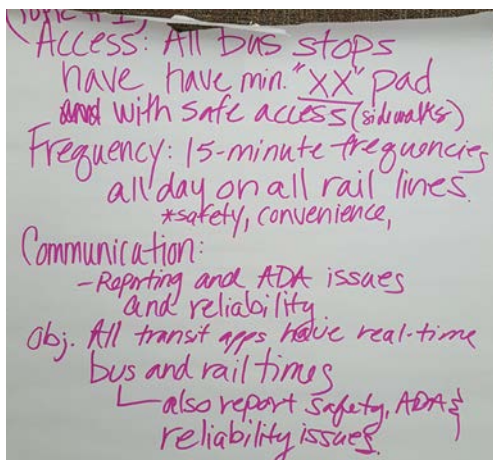 (Topic # 1)
Access: All bus stops
have have min. "XX" pad
and with safe access (sidewalks)
Frequency: 15-minute frequencies
all day on all rail lines.
*safety, convenience,
Communication:
-Reporting and ADA issues
and reliability
Obj. All transit apps have real-time
bus and rail times
also report safety, ADA &
reliability issues.